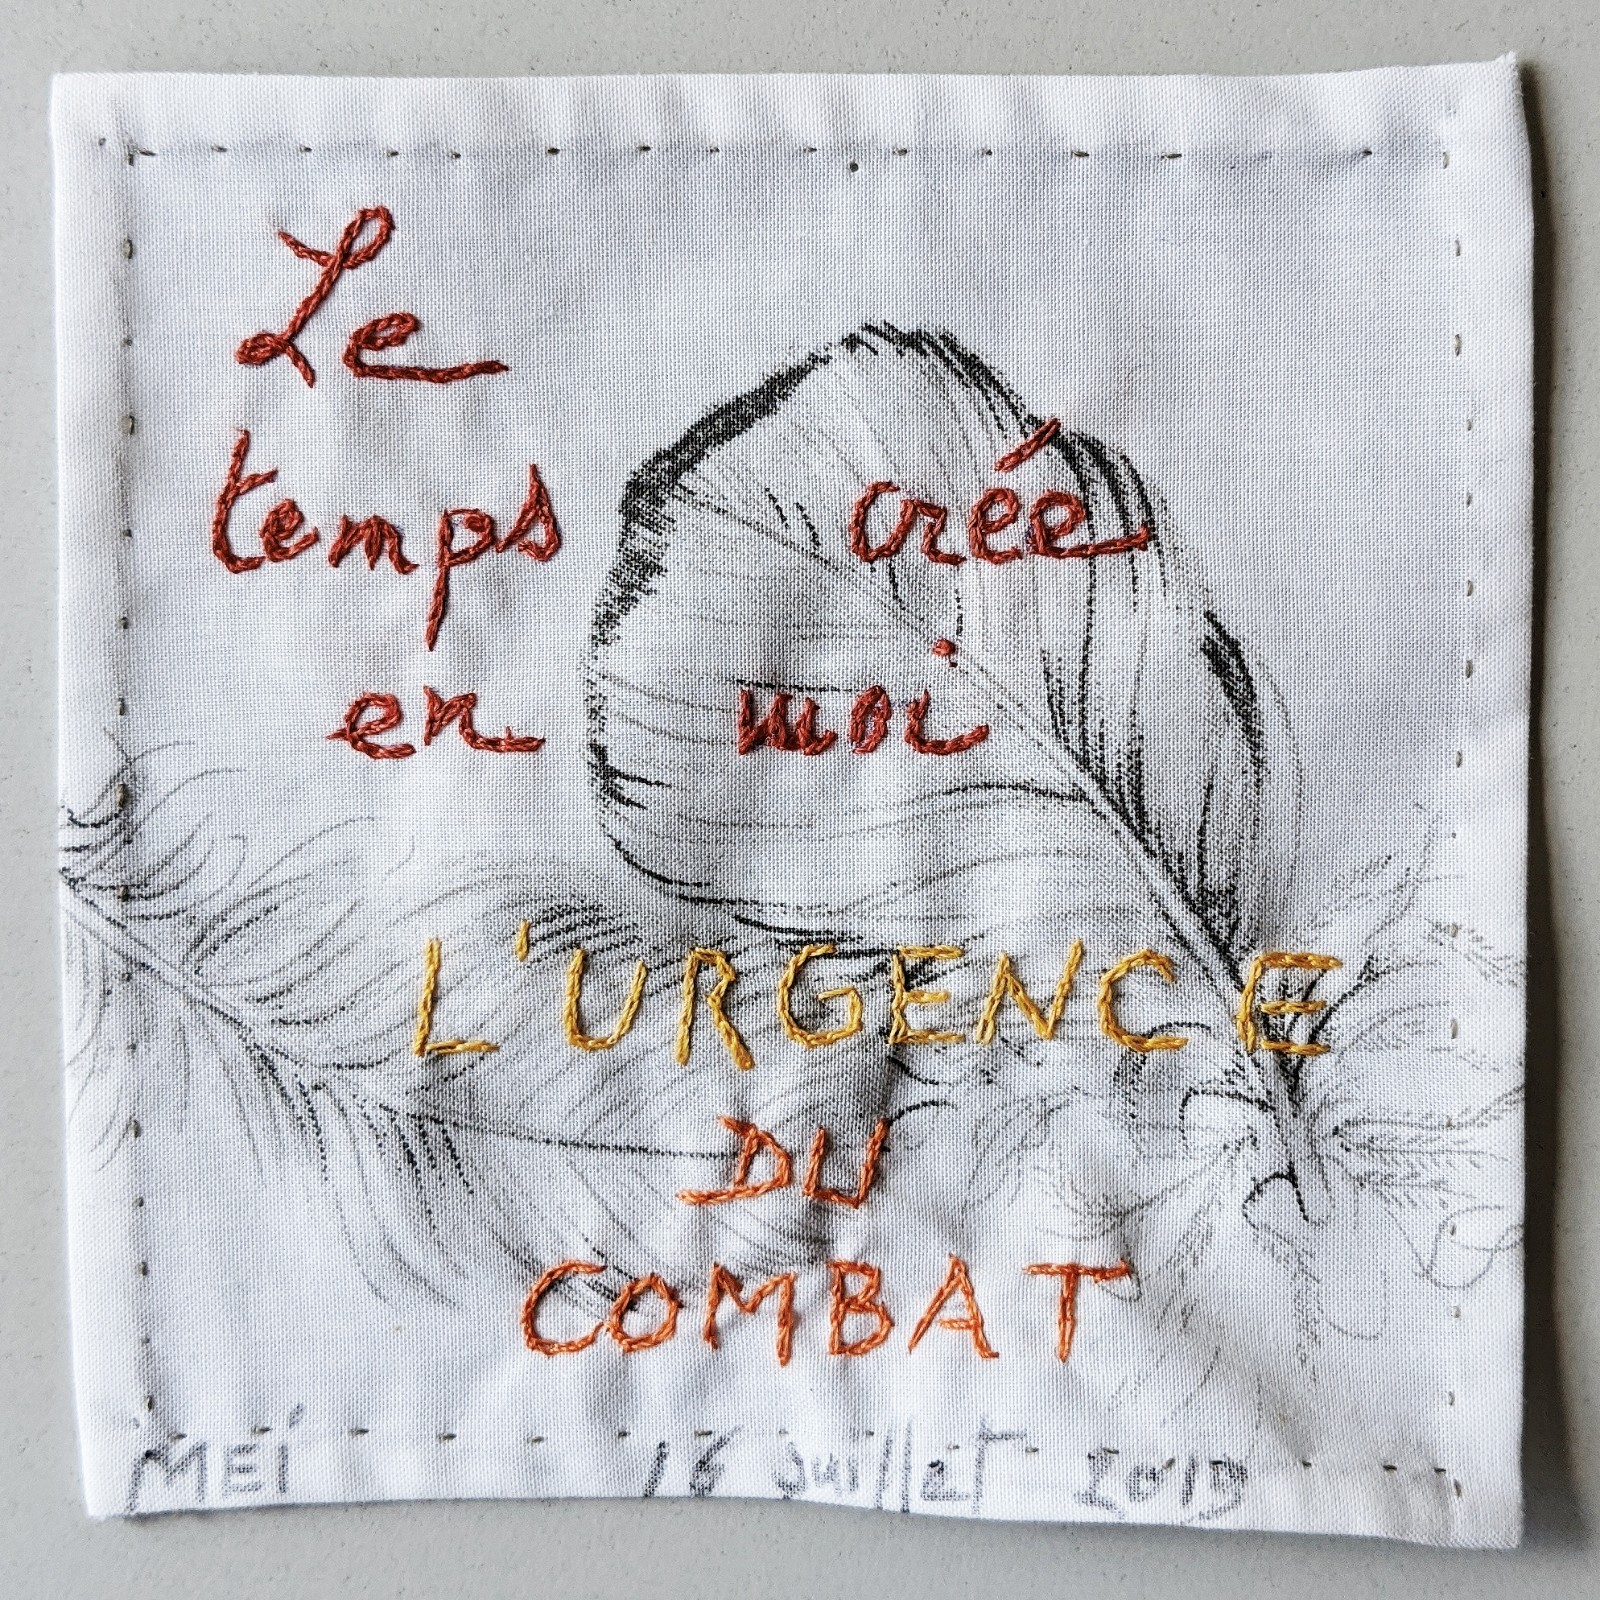 Le
temps crée
en moi
L'URGENCE
DU
COMBAT
MEI 16 juillet 2019